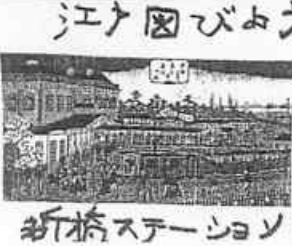 江戸図びよう
新橋ステーション